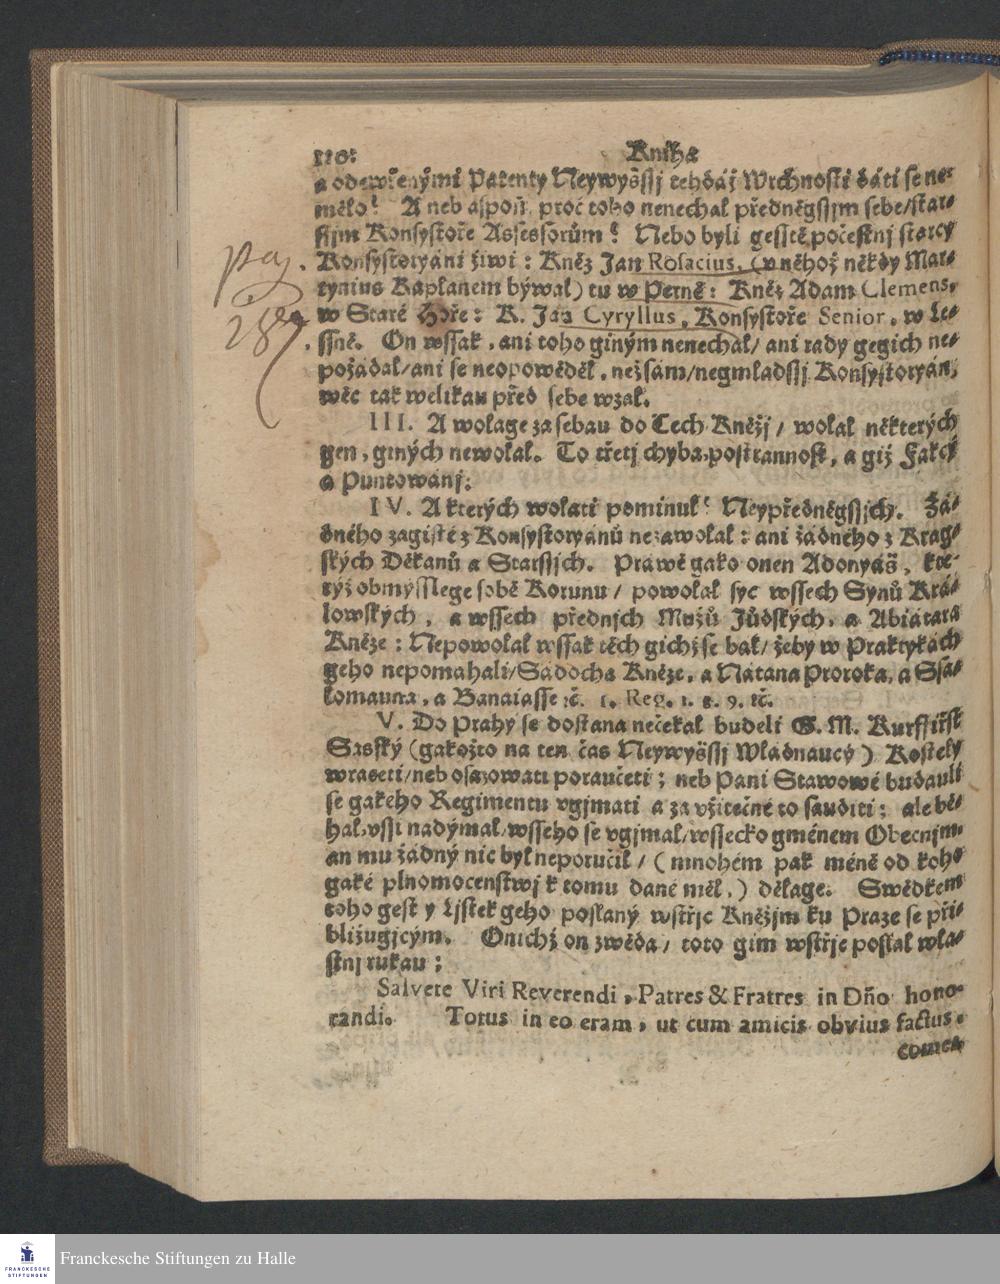 110. Kniha
a odewřenými Patenty Neywyšssj tehdáž Wrchnosti dáti se ne-
mělo? A neb aspoň proč toho nenechal předněgssjm sebe/star-
ssjm Konsystoře Assessorům? Nebo byli gesstě počestnj starcy
Konsystoryáni žiwi: Kněz Jan Rosacius, (v něhož někdy Mar-
tynius Kaplanem býwal) tu w Perně: Kněz Adam Clemens,
w Staré Hoře: K. Jan Cyryllus, Konsystoře Senior, w Le-
ssně. On wssak, ani toho giným nenechal/ ani rady gegich ne-
požádal/ani se neopowěděl, než sám/negmladssj Konsystoryán,
wěc tak welikau před sebe wzal.
III. A wolage za sebau do Cech Kněžj/ wolal některých
gen, giných newolal. To třetj chyba, postrannost, a giž Fakcý
a Puntowánj:
IV. A kterých wolati pominul? Neypředněgssjch. Žá-
dného zagisté z Konsystoryánů nezawolal: ani žádného z Krag-
ských Děkanů a Starssjch. Práwě gako onen Adonyáš, kte-
rýž obmysslege sobě Korunu/ powolal syc wssech Synů Krá-
lowských, a wssech přednjch Mužů Jůdských, a Abiatara
Kněze: Nepowolal wssak těch gichž se bal/ žeby w Praktykách
geho nepomáhali/Sádocha Kněze, a Nátana Proroka, a Ssa-
lomauna, a Banaiasse :č. 1. Reg. 1. 8. 9. &č.
V. Do Prahy se dostana nečekal budeli G. M. Kurffiřst
Saský (gakožto na ten čas Neywyšssj Wládnaucý) Kostely
wraceti/neb osazowati poraučeti; neb Pani Stawowé budauli
se gakého Regimentu vgjmati a za vžitečné to sauditi: ale bě-
hal, vssi nadýmal, wsseho se vgjmal/wssecko gménem Obecnjm,
an mu žádný nic byl neporučil/ (mnohém pak méně od koho
gaké plnomocenstwj k tomu dané měl,) dělage. Swědkem
toho gest y Ljstek geho poslaný wstřjc Kněžjm ku Praze se při-
bližugjcým. O nichž on zwěda/ toto gim wstřjc poslal wla-
stnj rukau:
Salvete Viri Reverendi, Patres & Fratres in Dño hono-
randi. Totus in eo eram, ut cum amicis obvius factus.
pag.
287